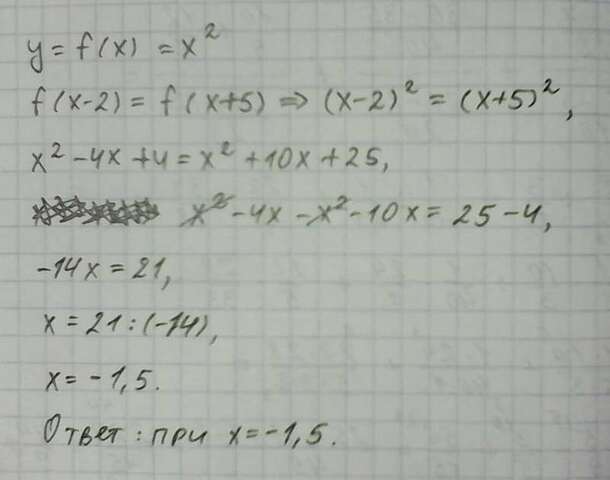 y = f(x) = x²
f(x-2) = f(x+5) => (x-2)² = (x+5)²,
x² - 4x + 4 = x² + 10x + 25,
x² - 4x - x² - 10x = 25 - 4,
-14x = 21,
x = 21 : (-14),
x = -1,5.
Ответ : при x = -1,5.